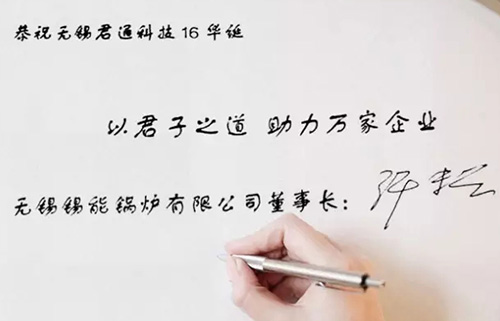 恭祝无锡君通科技16华诞
以君子之道 助力万家企业
无锡锡能锅炉有限公司董事长: